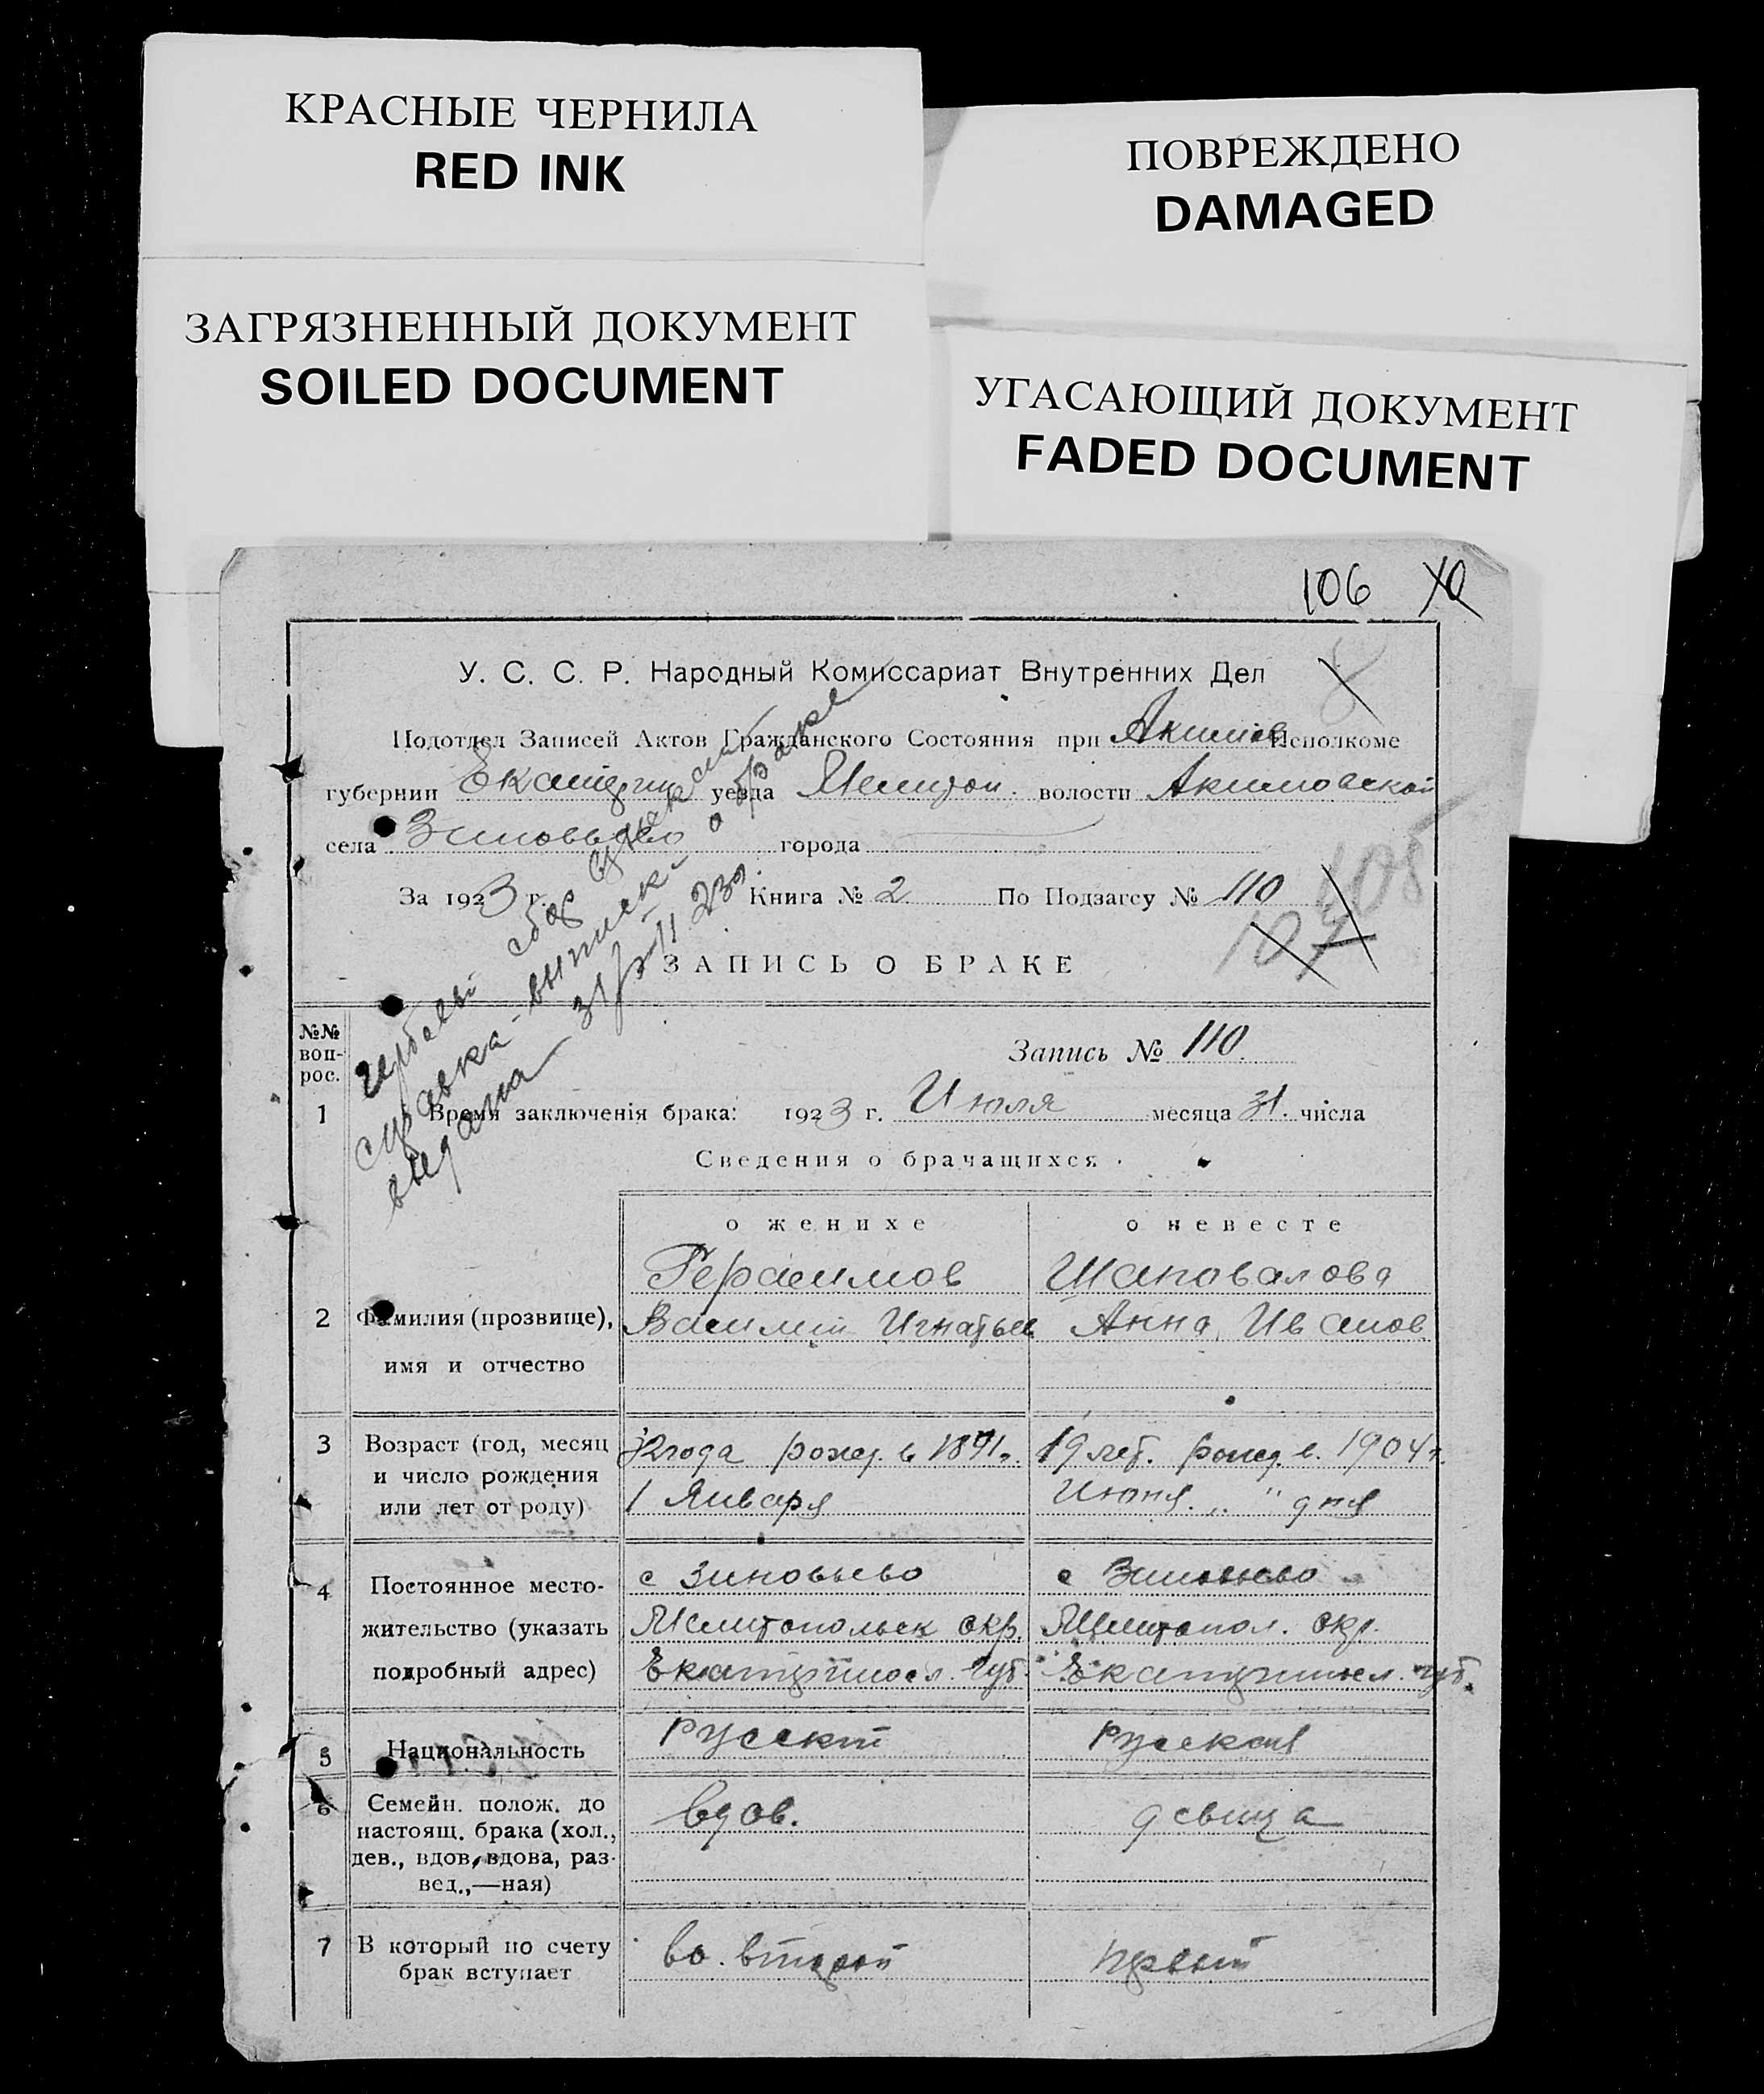 КРАСНЫЕ ЧЕРНИЛА
RED INK
ПОВРЕЖДЕНО
DAMAGED
ЗАГРЯЗНЕННЫЙ ДОКУМЕНТ
SOILED DOCUMENT
УГАСАЮЩИЙ ДОКУМЕНТ
FADED DOCUMENT
106
У. С. С. Р. Народный Комиссариат Внутренних Дел
Подотдел Записей Актов Гражданского Состояния при Акимов Исполкоме
губернии Екатерин уезда Мелитоп. волости Акимовской
села Зиновьево города
За 1923 г. Книга № 2 По Подзагсу № 110
107
ЗАПИСЬ О БРАКЕ
гербовый сбор
справка-выписка о браке
выдана 31/VII 23г.
№№ воп-рос.
Запись № 110
1 Время заключенія брака: 1923 г. Июля месяца 31. числа
Сведения о брачащихся
о женихе о невесте
Герасимов Шаповалова
2 Фамилия (прозвище), Василий Игнатьев Анна Иванов
имя и отчество
3 Возраст (год, месяц 32 года рожд. в 1891г. 19 лет. рожд. в. 1904г.
и число рождения
или лет от роду) 1 Января Июня „ " дня
4 Постоянное место- с Зиновьево с Зиновьево
жительство (указать Мелитопольск окр. Мелитопол. окр.
подробный адрес) Екатериносл. губ. Екатериносл. губ.
5 Национальность Русский Русская
6 Семейн. полож. до
настоящ. брака (хол., вдов. девица
дев., вдов, вдова, раз-
вед.,—ная)
7 В который по счету во. второй первый
брак вступает